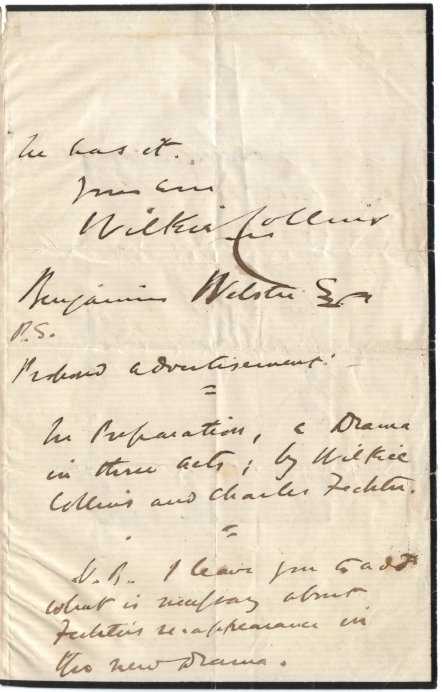 he has it.
Yours ever
Wilkie Collins
Benjamin Webster Esqr
P.S.
Proposed advertisement:
=
In Preparation, a Drama
in three acts; by Wilkie
Collins and Charles Fechter.
=
N.B. I leave you to add
what is necessary about
Fechter's re-appearance in
the new Drama.